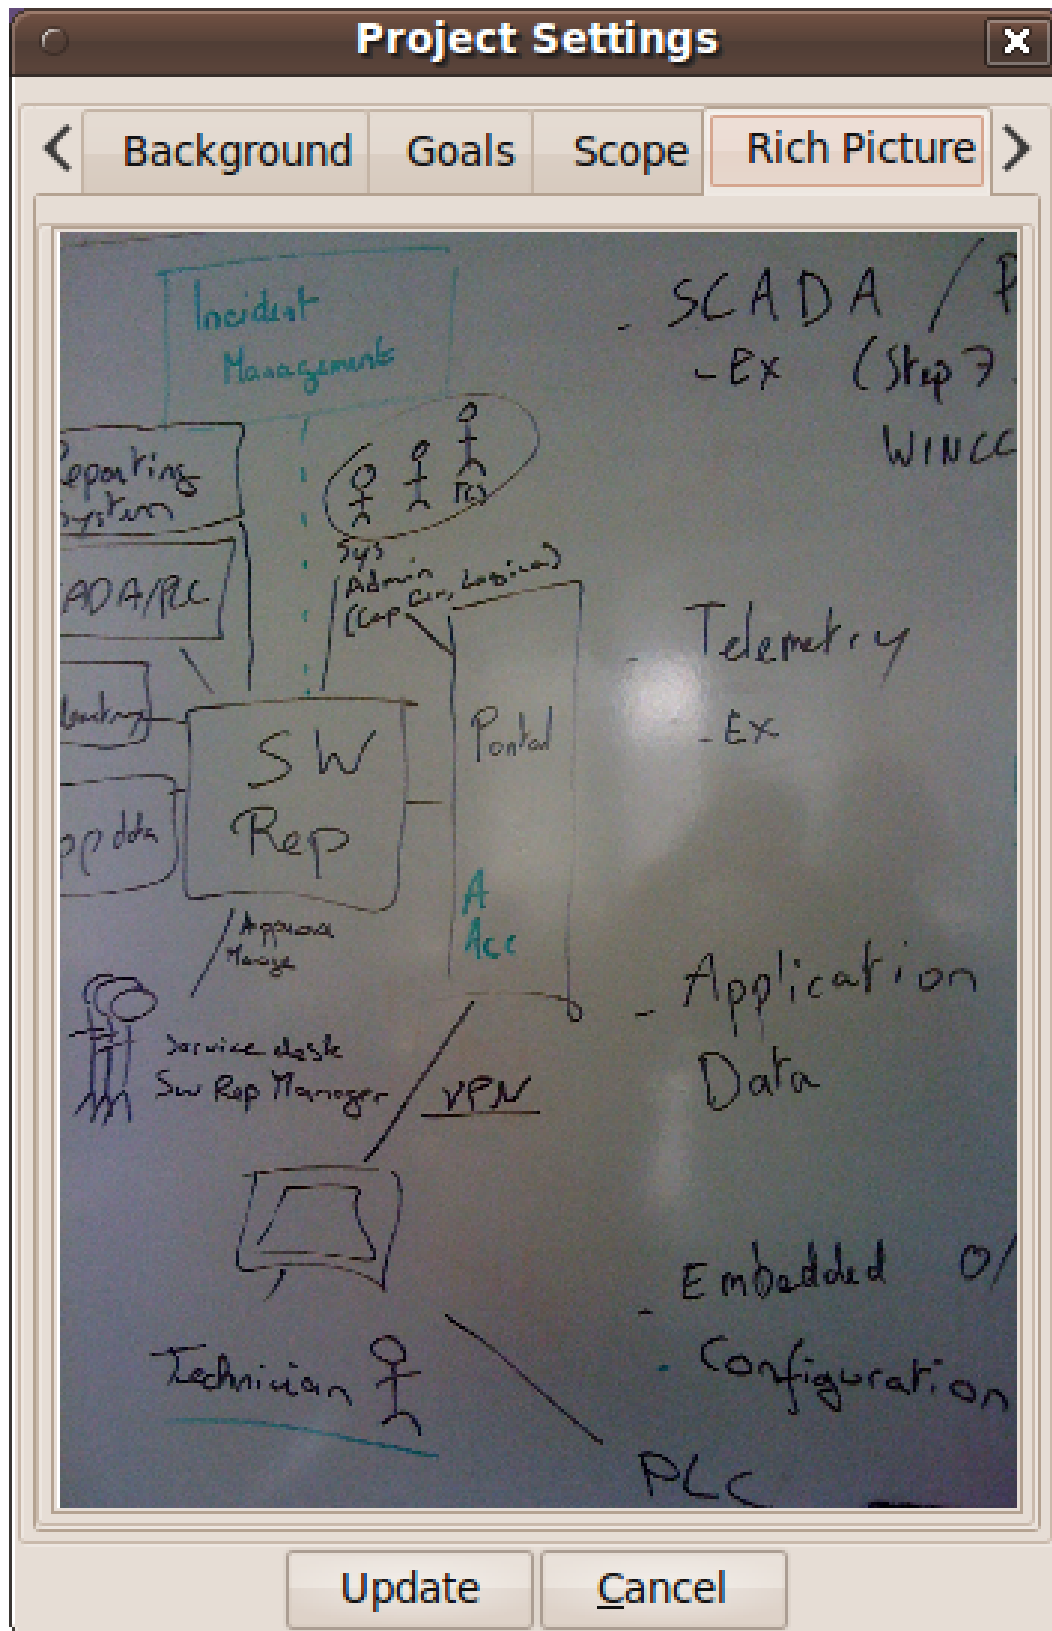 Project Settings
Background
Goals
Scope
Rich Picture
Incident
Management
eporting
ystem
ADA/PLC
SW
Rep
Sys
Admin
Portal
A
Acc
Approve
Manage
Service desk
SW Rep Manager
VPN
Technician
- SCADA / P
- Ex (Step 7
WINCC
- Telemetry
- Ex
- Application
Data
- Embedded O/
- Configuration
PLC
Update
Cancel